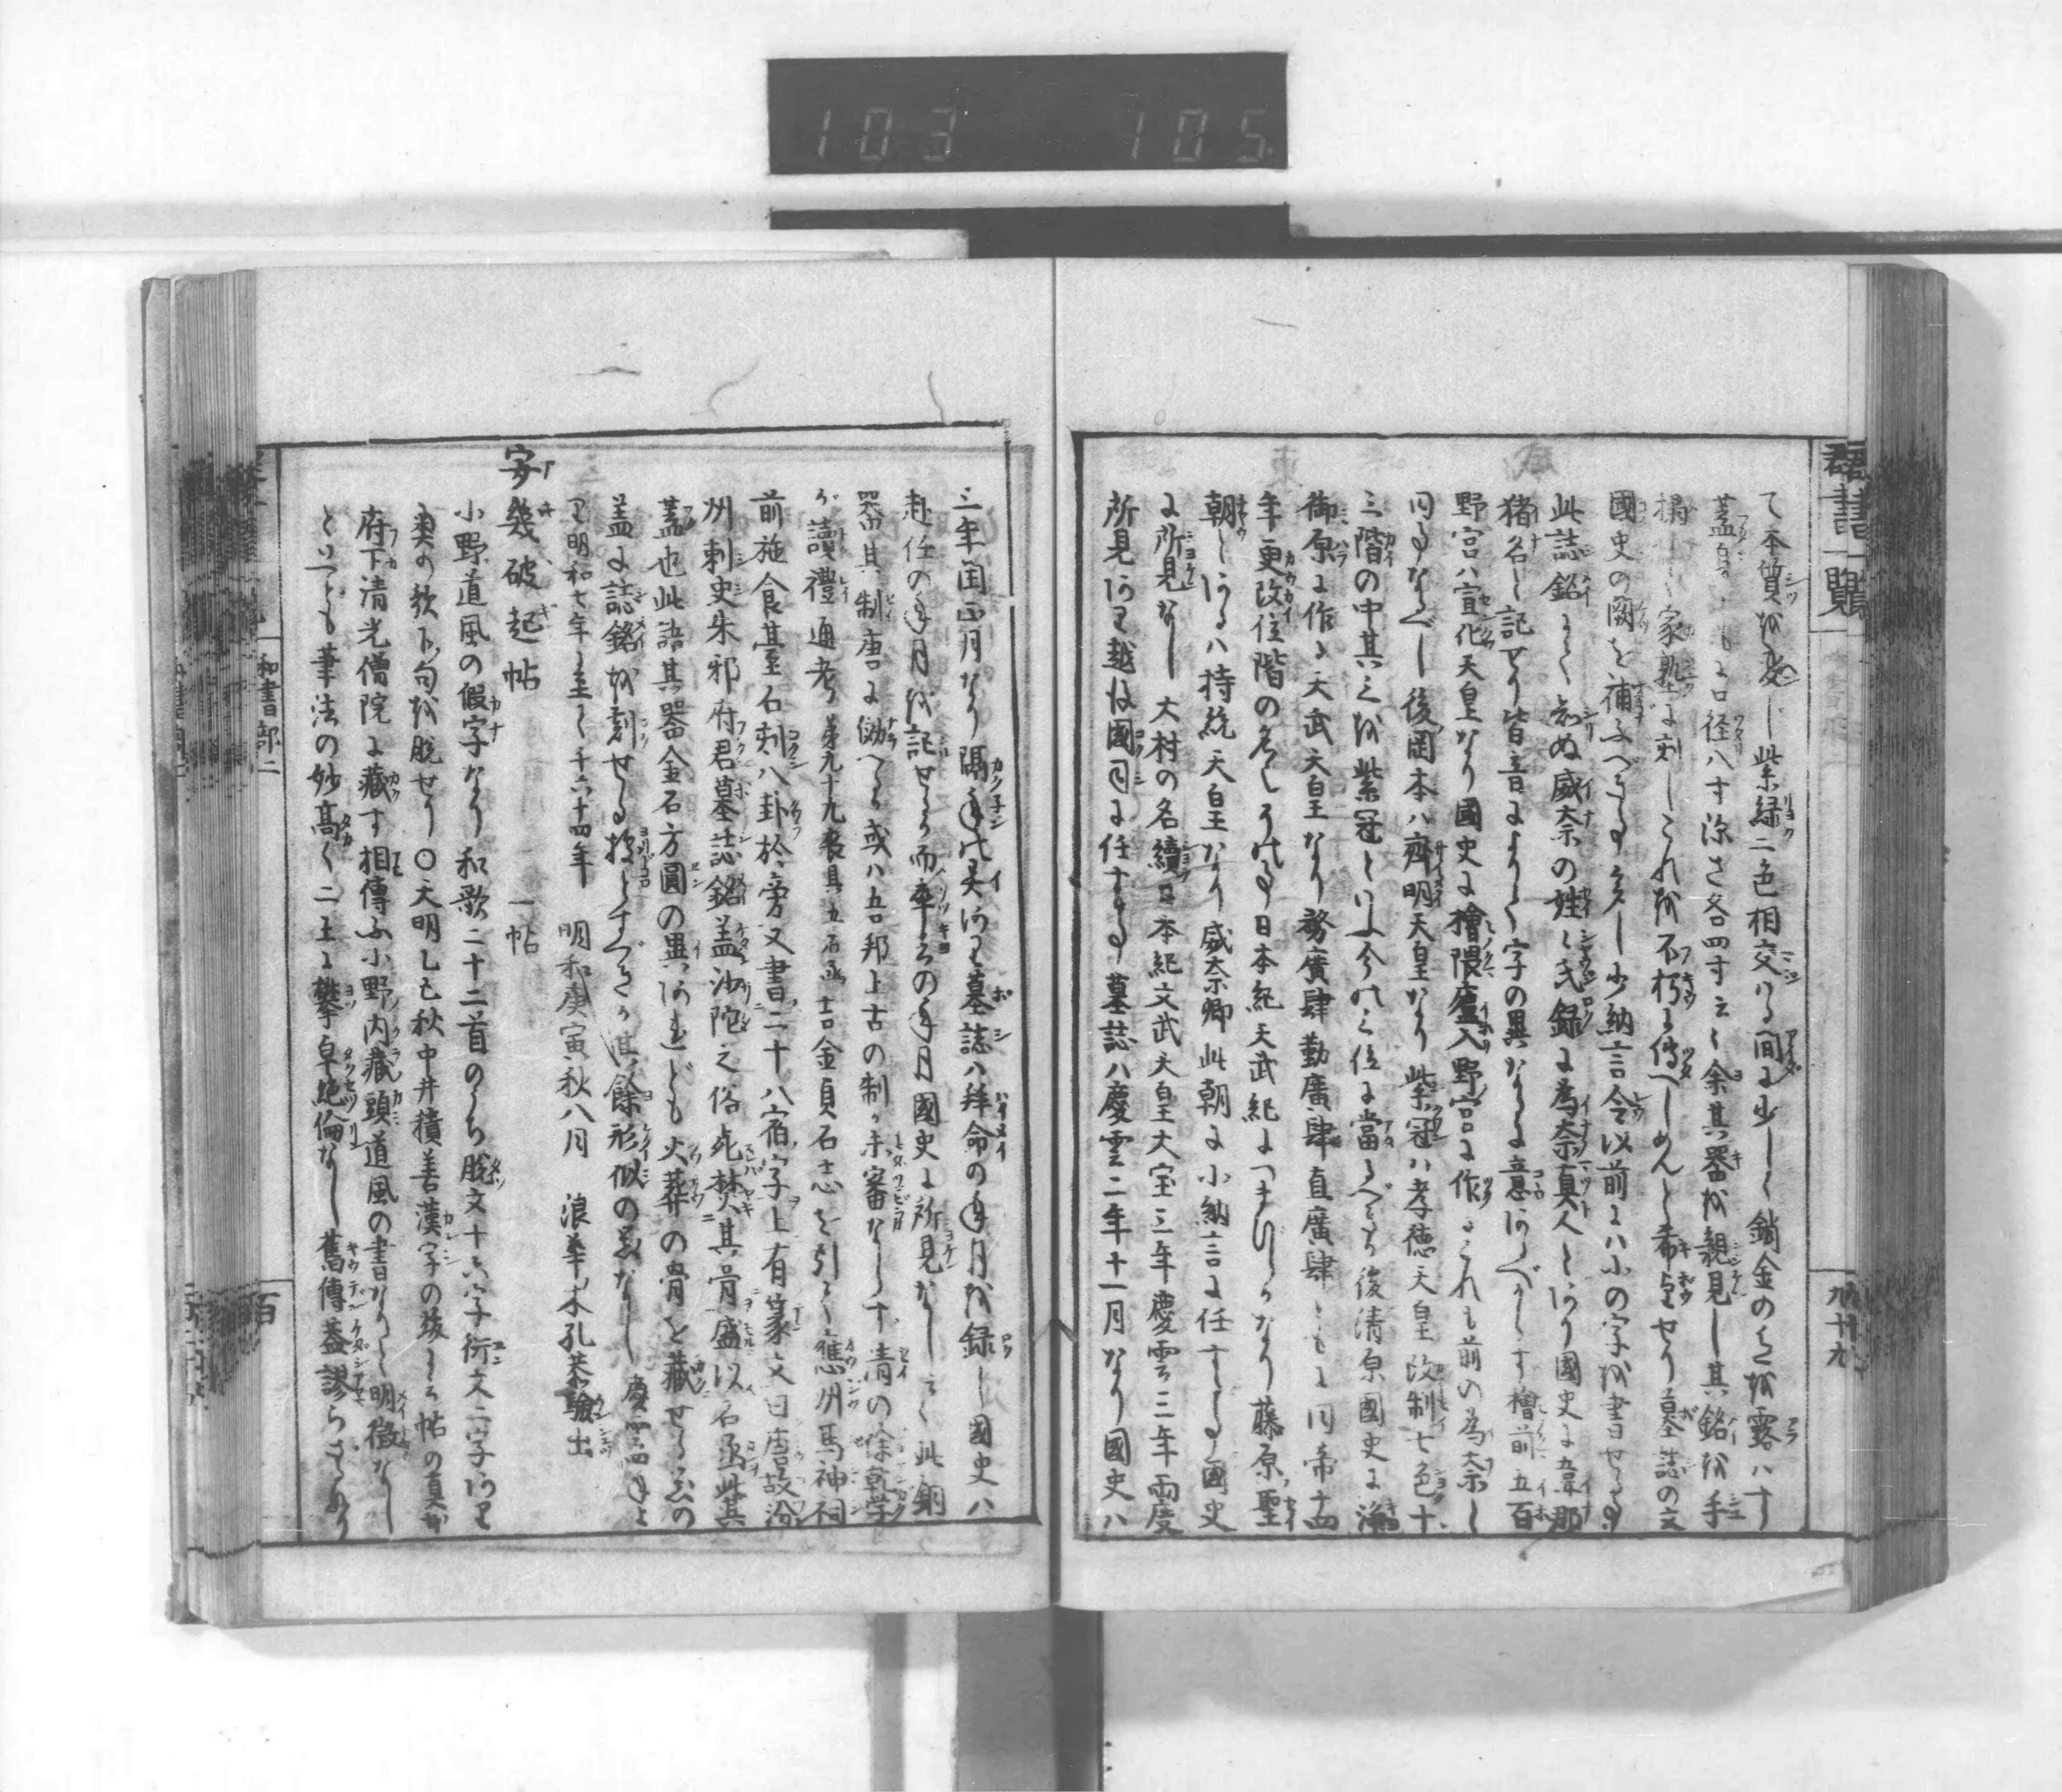 103 105
群書一覧
九十九
て本質を変じ紫緑二色相交りる間に少しく鎖金の色を露ハす
蓋身ともに口径八寸深さ各四寸云々余其器を親見し其銘を手
搨して家塾に刻しこれを不朽に傳へしめんと希望せり墓誌の文
國史の闕を補ふべき事多し少納言令以前にハ小の字を書せる事
此誌銘にて知ぬ威奈の姓ハ氏録に為奈真人とあり國史に韋那
猪名と記せり皆音によりて字の異なるに意あるべからす檜前五百
野宮ハ宣化天皇なり國史に檜隈廬入野宮に作るこれも前の為奈と
同事なるべし後岡本ハ齊明天皇なり紫冠ハ孝徳天皇改制七色十
三階の中其三を紫冠といふ今の三位に當るべきか後清原國史に浄
御原に作る天武天皇なり務廣肆勤廣肆直廣肆ともに同帝十四
年更改位階の名しるせる事日本紀天武紀につまびらかなり藤原聖
朝とあるハ持統天皇なり威奈卿此朝に小納言に任する事國史
に所見なし大村の名續日本紀文武天皇大宝三年慶雲三年両度
所見あり越後國司に任する事墓誌ハ慶雲二年十一月なり國史ハ
三年閏正月なり隔年の異あり墓誌ハ拜命の年月を録し國史ハ
赴任の年月を記せるか而卒するの年月國史に所見なしさて此銅
器其制唐に倣へるか或ハ吾邦上古の制か未審ならす清の徐乾学
が讀禮通考第九十九喪具五石函古金貞石志を引て應州馬神祠
前施食其臺石刻八卦於旁又書二十八宿字上有篆文曰唐故汾
州刺史朱邪府君墓誌銘蓋沙陀之俗死焚其骨盛以石函此其
蓋也此語其器金石方圓の異あれども火葬の骨を藏せる器の
蓋に誌銘を刻せる據とすべきか其餘形似の器なし慶雲四年よ
り明和七年に至て千六十四年 明和庚寅秋八月 浪華木孔恭驗出
安幾破起帖 一帖
小野道風の假字なり和歌二十二首のうち脱文十六字衍文二字あり
奥の歌下句を脱せり〇天明乙巳秋中井積善漢字の跋して帖の真お
府下清光僧院に藏す相傳ふ小野内藏頭道風の書なりと明徴なし
といへども筆法の妙高く二王に攀卓絶倫なし舊傳蓋謬らざるなり
和書部二
百